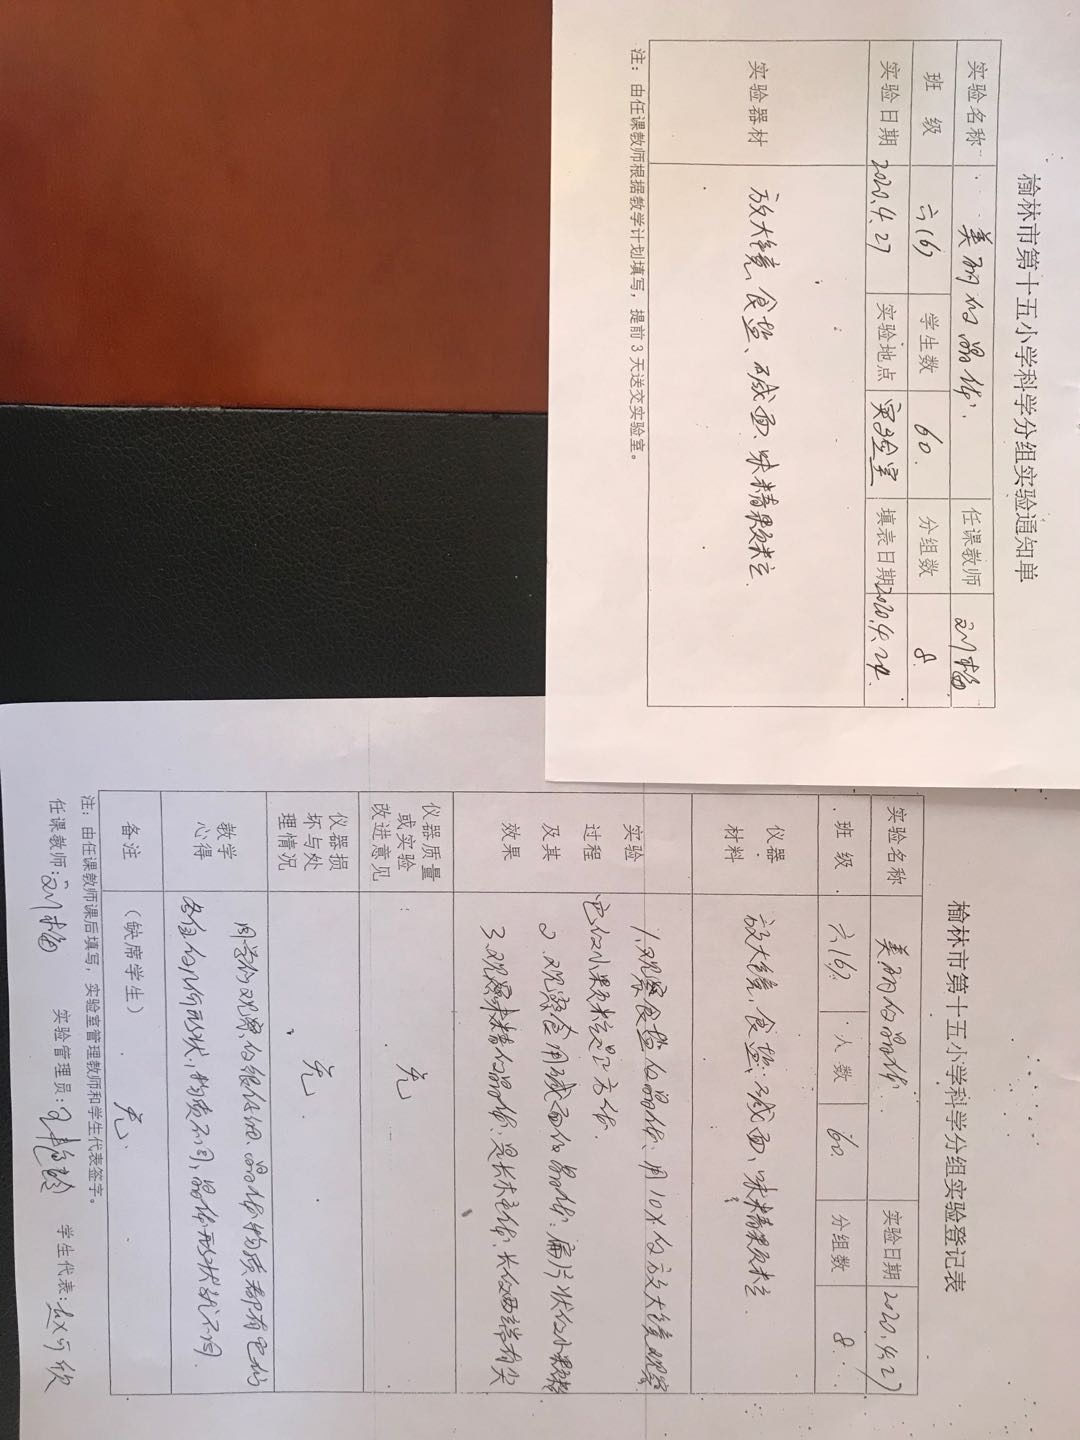 榆林市第十五小学科学分组实验通知单
实验名称 美丽的晶体 任课教师 刘
班 级 六(6) 学生数 60 分组数 8
实验日期 2020.4.27 实验地点 实验室 填表日期 2020.4.24
实验器材 放大镜、食盐、碱面、味精颗粒
注：由任课教师根据教学计划填写，提前3天送交实验室。
榆林市第十五小学科学分组实验登记表
实验名称 美丽的晶体 实验日期 2020.4.27
班 级 六(6) 人数 60 分组数 8
仪器材料 放大镜、食盐、碱面、味精颗粒
实验过程及其效果
1、观察食盐的晶体，用10X的放大镜观察
它的小颗粒是立方体.
2、观察食用碱面的晶体：扁片状的小颗粒
3、观察味精的晶体，是长柱体，长的两端有尖
仪器质量或实验改进意见 无
仪器损坏与处理情况 无
教学心得 同学们观察的很仔细、晶体物质都有它们
各自的几何形状，物质不同，晶体形状就不同.
备注 （缺席学生） 无
注：由任课教师课后填写，实验室管理教师和学生代表签字。
任课教师：刘 实验管理员： 学生代表：赵可欣